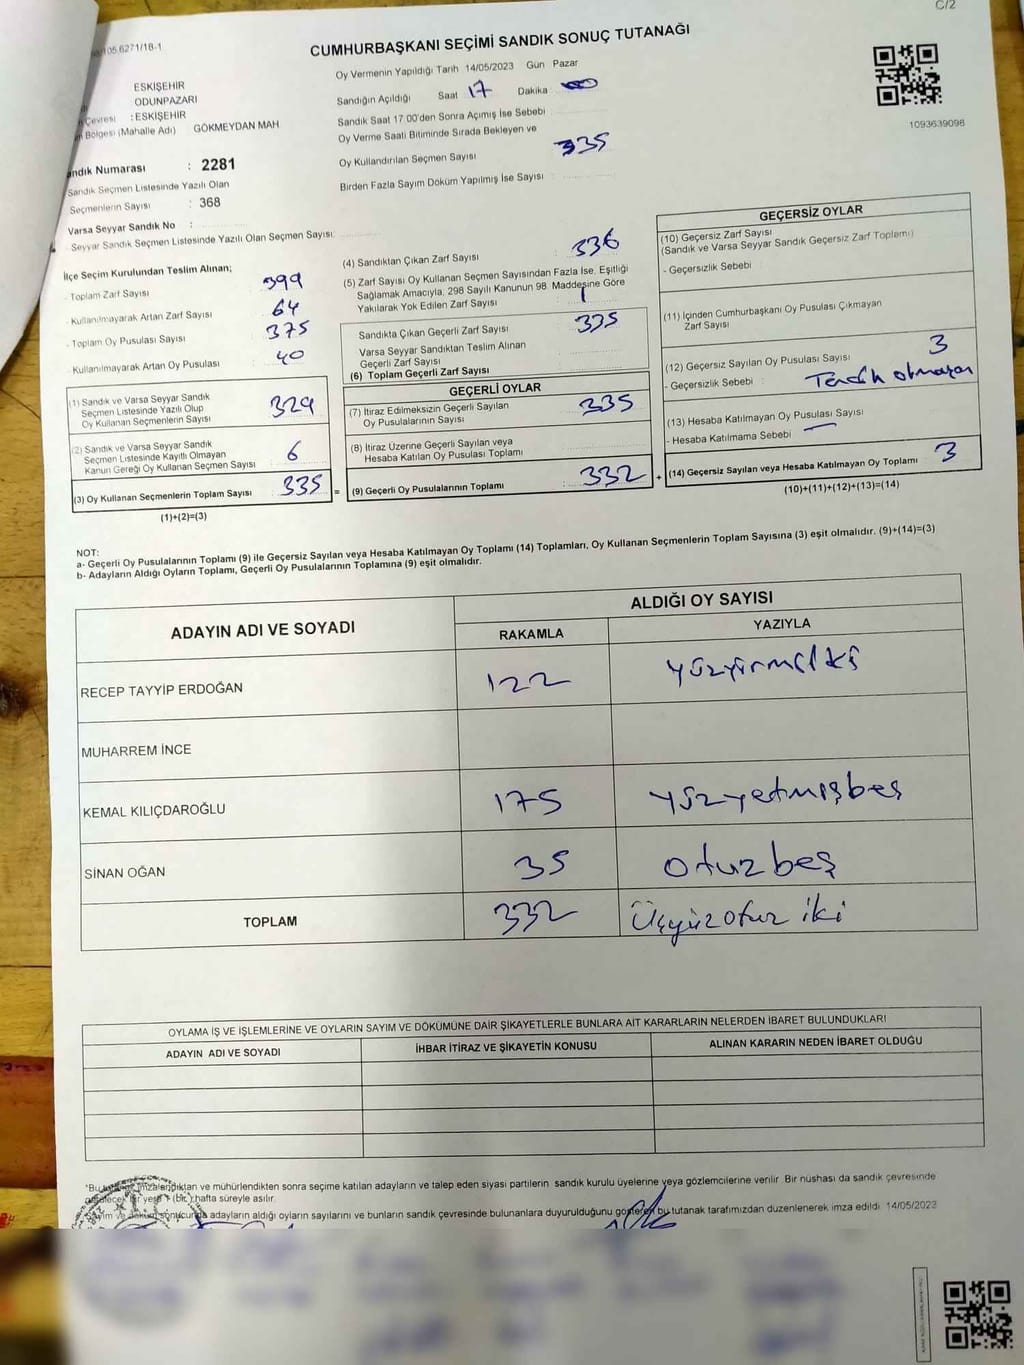 C/2
105.6271/18-1
CUMHURBAŞKANI SEÇİMİ SANDIK SONUÇ TUTANAĞI
ESKİŞEHİR
ODUNPAZARI
Çevresi : ESKİŞEHİR
Bölgesi (Mahalle Adı) GÖKMEYDAN MAH
Sandık Numarası : 2281
Sandık Seçmen Listesinde Yazılı Olan
Seçmenlerin Sayısı : 368
Varsa Seyyar Sandık No :
- Seyyar Sandık Seçmen Listesinde Yazılı Olan Seçmen Sayısı:
Oy Vermenin Yapıldığı Tarih 14/05/2023 Gün Pazar
Sandığın Açıldığı Saat 17 Dakika
Sandık Saat 17 00'den Sonra Açımış İse Sebebi
Oy Verme Saati Bitiminde Sırada Bekleyen ve
Oy Kullandırılan Seçmen Sayısı 335
Birden Fazla Sayım Döküm Yapılmış İse Sayısı
1093639098
İlçe Seçim Kurulundan Teslim Alınan;
- Toplam Zarf Sayısı : 399
- Kullanılmayarak Artan Zarf Sayısı : 64
- Toplam Oy Pusulası Sayısı : 375
- Kullanılmayarak Artan Oy Pusulası : 40
(1) Sandık ve Varsa Seyyar Sandık
Seçmen Listesinde Yazılı Olup
Oy Kullanan Seçmenlerin Sayısı : 329
(2) Sandık ve Varsa Seyyar Sandık
Seçmen Listesinde Kayıtlı Olmayan
Kanun Gereği Oy Kullanan Seçmen Sayısı : 6
(3) Oy Kullanan Seçmenlerin Toplam Sayısı : 335 =
(1)+(2)=(3)
(4) Sandıktan Çıkan Zarf Sayısı : 336
(5) Zarf Sayısı Oy Kullanan Seçmen Sayısından Fazla İse, Eşitliği
Sağlamak Amacıyla, 298 Sayılı Kanunun 98. Maddesine Göre
Yakılarak Yok Edilen Zarf Sayısı : 1
Sandıkta Çıkan Geçerli Zarf Sayısı : 335
Varsa Seyyar Sandıktan Teslim Alınan
Geçerli Zarf Sayısı
(6) Toplam Geçerli Zarf Sayısı
GEÇERLİ OYLAR
(7) İtiraz Edilmeksizin Geçerli Sayılan
Oy Pusulalarının Sayısı : 335
(8) İtiraz Üzerine Geçerli Sayılan veya
Hesaba Katılan Oy Pusulası Toplamı
(9) Geçerli Oy Pusulalarının Toplamı : 332 +
GEÇERSİZ OYLAR
(10) Geçersiz Zarf Sayısı
(Sandık ve Varsa Seyyar Sandık Geçersiz Zarf Toplemı)
- Geçersizlik Sebebi
(11) İçinden Cumhurbaşkanı Oy Pusulası Çıkmayan
Zarf Sayısı
(12) Geçersiz Sayılan Oy Pusulası Sayısı : 3
- Geçersizlik Sebebi : Tercih olmayan
(13) Hesaba Katılmayan Oy Pusulası Sayısı
- Hesaba Katılmama Sebebi —
(14) Geçersiz Sayılan veya Hesaba Katılmayan Oy Toplamı 3
(10)+(11)+(12)+(13)=(14)
NOT:
a- Geçerli Oy Pusulalarının Toplamı (9) ile Geçersiz Sayılan veya Hesaba Katılmayan Oy Toplamı (14) Toplamları, Oy Kullanan Seçmenlerin Toplam Sayısına (3) eşit olmalıdır. (9)+(14)=(3)
b- Adayların Aldığı Oyların Toplamı, Geçerli Oy Pusulalarının Toplamına (9) eşit olmalıdır.
ADAYIN ADI VE SOYADI ALDIĞI OY SAYISI
RAKAMLA YAZIYLA
RECEP TAYYİP ERDOĞAN 122 yüzyirmiiki
MUHARREM İNCE
KEMAL KILIÇDAROĞLU 175 yüzyetmişbeş
SİNAN OĞAN 35 otuzbeş
TOPLAM 332 Üçyüzotuz iki
OYLAMA İŞ VE İŞLEMLERİNE VE OYLARIN SAYIM VE DÖKÜMÜNE DAİR ŞİKAYETLERLE BUNLARA AİT KARARLARIN NELERDEN İBARET BULUNDUKLARI
ADAYIN ADI VE SOYADI İHBAR İTİRAZ VE ŞİKAYETİN KONUSU ALINAN KARARIN NEDEN İBARET OLDUĞU
*Bu imzalendıktan ve mühürlendikten sonra seçime katılan adayların ve talep eden siyasi partilerin sandık kurulu üyelerine veya gözlemcilerine verilir. Bir nüshası da sandık çevresinde
yere (bir) hafta süreyle asılır.
adayların aldığı oyların sayılarını ve bunların sandık çevresinde bulunanlara duyurulduğunu gösteren bu tutanak tarafımızdan düzenlenerek imza edildi 14/05/2023